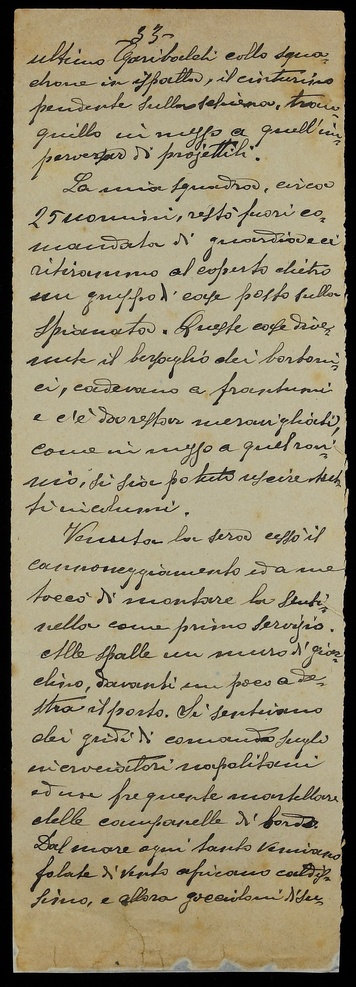 -33-
ultimo Garibaldi colla squa-
drone in ispalla, il cinturino
pendente sulla schiena, tran-
quillo in mezzo a quell'im-
perversar di projettili.
La mia squadra, circa
25 uomini, restò fuori co-
mandata di guardia e ci
ritirammo al coperto dietro
un gruppo di case posto sulla
spianata. Queste case dive-
nute il bersaglio dei borboni-
ci, cadevano a frantumi
e c'è da restar meravigliati,
come in mezzo a quel rovi-
nio, si sia potuto uscire tut-
ti incolumi.
Venuta la sera cessò il
cannoneggiamento ed a me
toccò di montare la senti-
nella come primo servizio.
Alle spalle un muro di giar-
dino, davanti un poco a de-
stra il porto. Si sentivano
dei gridi di comando sugli
incrociatori napolitani
ed un frequente martellare
delle campanelle di bordo.
Dal mare ogni tanto venivano
folate di vento africano caldis-
simo, e allora goccioloni di su-